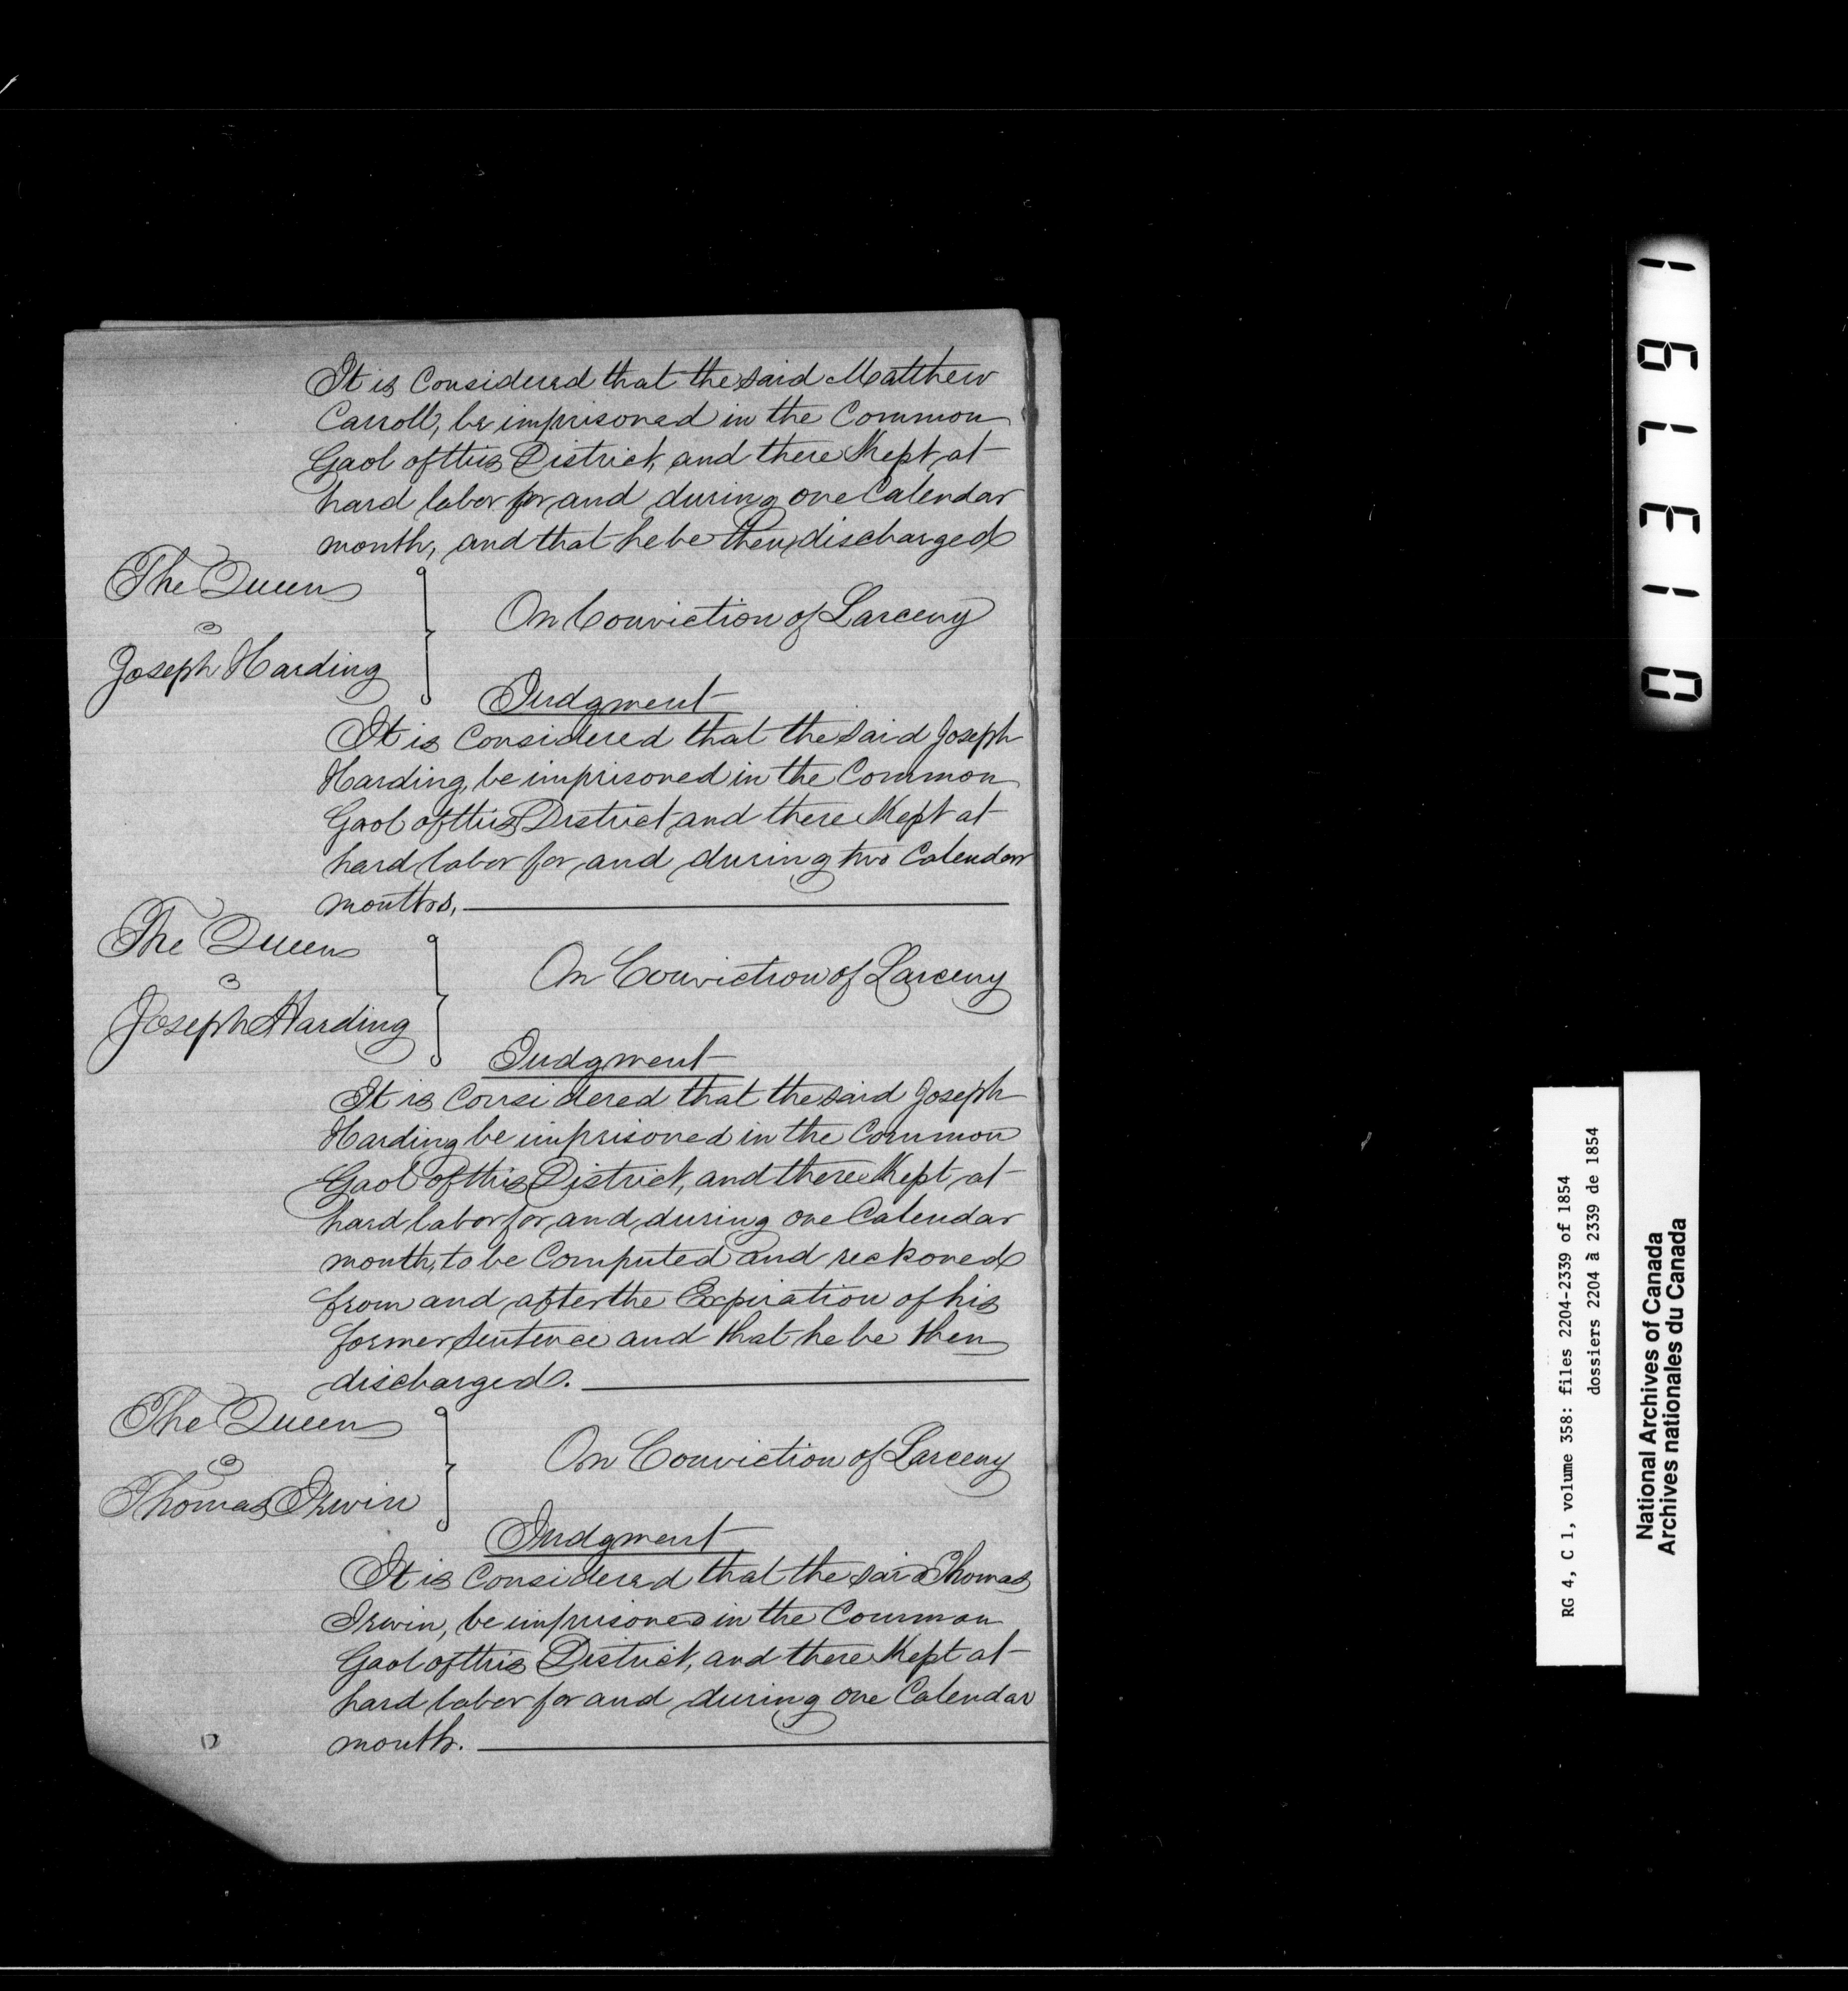 It is Considered that the said Matthew
Carroll, be imprisoned in the Common
Gaol of this District, and there Kept at
hard labor for and during one Calendar
month, and that he be then discharged
The Queen
Joseph Harding
On Conviction of Larceny
Judgment
It is Considered that the said Joseph
Harding, be imprisoned in the Common
Gaol of this District and there Kept at
hard labor for and during two Calendar
months,
The Queen
Joseph Harding
On Conviction of Larceny
Judgment
It is Considered that the said Joseph
Harding be imprisoned in the Common
Gaol of this District, and there Kept at
hard labor for and during one Calendar
month, to be Computed and reckoned
from and after the Expiration of his
former Sentence and that he be then
discharged.
The Queen
Thomas Irwin
On Conviction of Larceny
Judgment
It is Considered that the said Thomas
Irwin, be imprisoned in the Common
Gaol of this District, and there Kept at
hard labor for and during one Calendar
month.
013191
RG 4, C 1, volume 358: files 2204-2339 of 1854
dossiers 2204 à 2339 de 1854
National Archives of Canada
Archives nationales du Canada